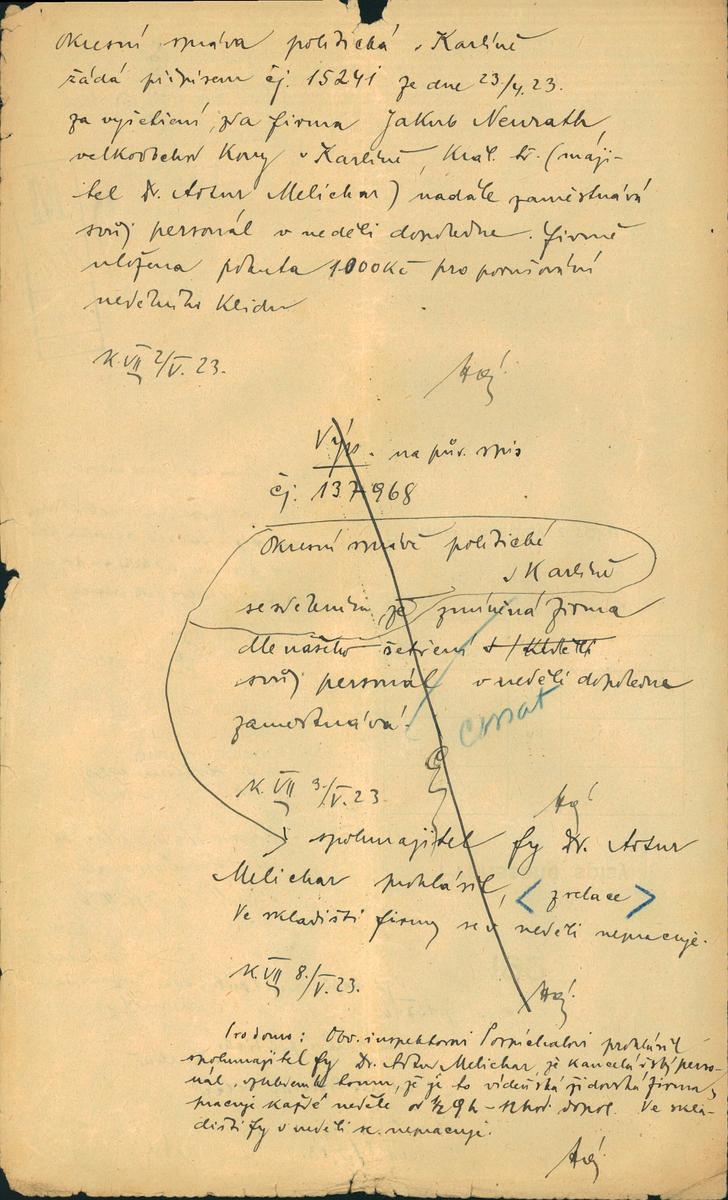 Okresní správa politická v Karlíně
žádá přípisem čj. 15241 ze dne 23/4. 23.
za vyšetření, zda firma Jakub Neurath,
velkoobchod kovy v Karlíně, Král. tř. (maji-
tel Dr. Artur Melichar) nadále zaměstnává
svůj personál v neděli dopoledne. Firmě
uložena pokuta 1000 Kč pro porušování
nedělního klidu
K. VII 2/V. 23.
Výp. na pův. spis
čj. 137968
Okresní správě politické
v Karlíně
se sdělením, že zmíněná firma
dle našeho šetření
svůj personál v neděli dopoledne
zaměstnává.
K. VII 3/V. 23
spolumajitel fy Dr. Artur
Melichar prohlásil, < z relace >
Ve skladišti firmy se v neděli nepracuje.
K. VII 8./V. 23.
Pro domo: Obv. inspektorovi prohlásil
spolumajitel fy Dr. Artur Melichar, že kancelářský perso-
nál, vzhledem k tomu, že je to vídeňská židovská firma,
pracuje každé neděle od 1/2 9 h – 12 hod. dopol. Ve skla-
dišti fy v neděli se nepracuje.